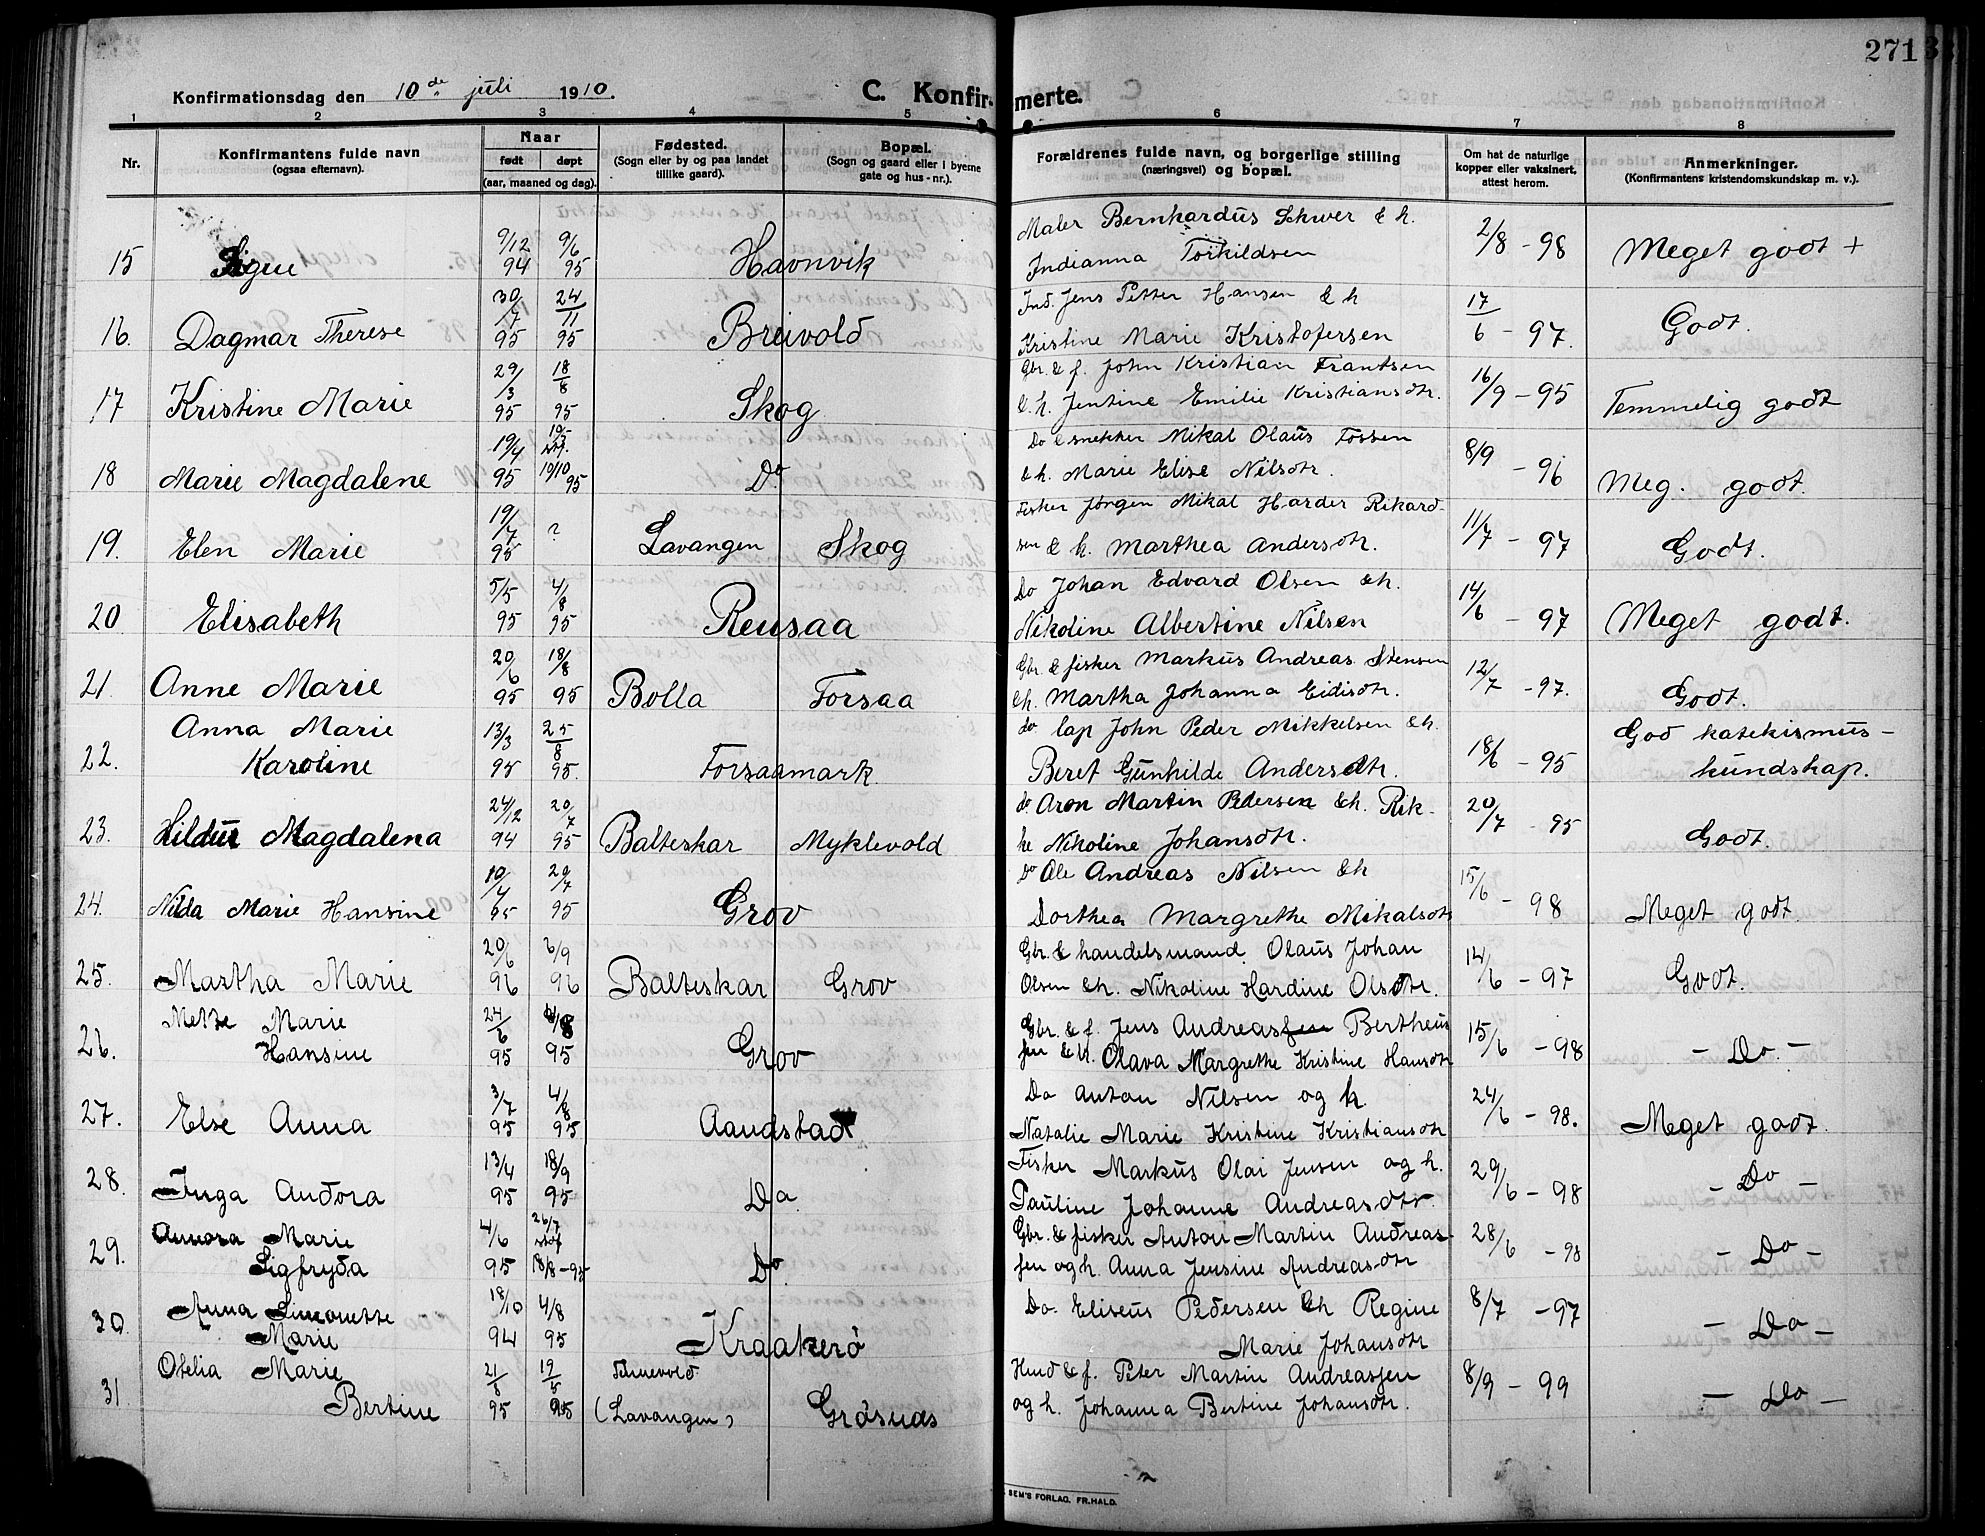 271
Konfirmationsdag den 10de juli 1910.
C. Konfirmerte.
1 2 3 4 5 6 7 8
Nr.
Konfirmantens fulde navn
(ogsaa efternavn).
Naar
født døpt
(aar, maaned og dag).
Fødested.
(Sogn eller by og paa landet
tillike gaard).
Bopæl.
(Sogn og gaard eller i byerne
gate og hus-nr.).
Forældrenes fulde navn, og borgerlige stilling
(næringsvei) og bopæl.
Om hat de naturlige
kopper eller vaksinert,
attest herom.
Anmerkninger.
(Konfirmantens kristendomskundskap m. v.).
15 Signe 9/12 94 9/6 95 Havnvik
Maler Bernhardus Schwer & h.
Indianna Torkildsen
2/8 - 98 Meget godt +
16. Dagmar Therese 30/7 95 24/11 95 Breivold
Ind. Jens Petter Hansen & h
Kristine Marie Kristofersen
17/6 - 97. Godt.
17 Kristine Marie 29/3 95 18/8 95 Skog
Gbr. & f. John Kristian Frantsen
& h. Jentine Emilie Kristiansdtr.
16/9 - 95 Temmelig godt
18 Marie Magdalene 19/4 95 10/10 95 Do
Do & snekker Mikal Olaus Fossen
& h. Marie Elise Nilsdtr.
8/9 - 96 Meg. godt.
19. Elen Marie 19/7 95 ? Lavangen Skog
Fisker Jørgen Mikal Harder Rikard-
sen & h. Marthea Andersdtr.
11/7 - 97 Godt.
20 Elisabeth 5/5 95 4/8 95 Rensaa
Do Johan Edvard Olsen & h.
Nikoline Albertine Nilsen
14/6 - 97 Meget godt.
21 Anne Marie 20/6 95 18/8 95 Bolla Forsaa
Gbr & fisker Markus Andreas Stensen
& h. Martha Johanna Eidisdtr.
12/7 - 97. Godt.
22. Anna Marie
Karoline 13/3 95 25/8 95. Forsaamark
do lap John Peder Mikkelsen & h.
Beret Gunhilde Andersdtr.
18/6 - 95 God katekismus-
kundskap.
23. Hildur Magdalena 24/12 94 20/7 95 Balteskar Myklevold
do Aron Martin Pedersen & h. Rik-
ke Nikoline Johansdtr.
20/7 - 95 Godt.
24. Nilda Marie Hansine 10/4 95 29/7 95 Grov
Do Ole Andreas Nilsen & h
Dorthea Margrethe Mikalsdtr
15/6 - 98 Meget godt.
25. Martha Marie 20/6 96 6/9 96 Balteskar Grov
Gbr. & handelsmand. Olaus Johan
Olsen & h. Nikoline Hardine Olsdtr.
14/6 - 97 Godt.
26. Mette Marie
Hansine 24/6 95 95 Grov
Gbr. & f. Jens Andreas Bertheus
sen & h. Olava Margrethe Kristine Hansdtr
15/6 - 98 - Do. -
27. Else Anna 3/7 95 4/8 95 Aandstad
Do Anton Nilsen og h.
Natalie Marie Kristine Kristiansdtr
24/6 - 98. Meget godt.
28. Inga Andora 13/4 95 18/9 95 Do.
Fisker Markus Olai Jensen og h.
Pauline Johanne Andreasdtr.
29/6 - 98 - Do -
29. Annora Marie
Sigfryda 4/6 95 26/7 18/8 - 95 Do.
Gbr. & fisker Anton Martin Andreas-
sen og h. Anna Jensine Andreasdtr
28/6 - 98 - Do -
30. Anna Simonette
Marie 18/10 94 4/8 95 Kraakerø
Do. Eliseus Pedersen & h Regine
Marie Johansdtr
8/7 - 97 - Do -
31. Otelia Marie
Bertine 21/8 95 19/5 95 (Lavangen) Grøsnæs
& f. Peter Martin Andreassen
og h. Johanna Bertine Johansdtr.
8/9 - 99 - Do -
SEM'S FORLAG, FR.HALD.